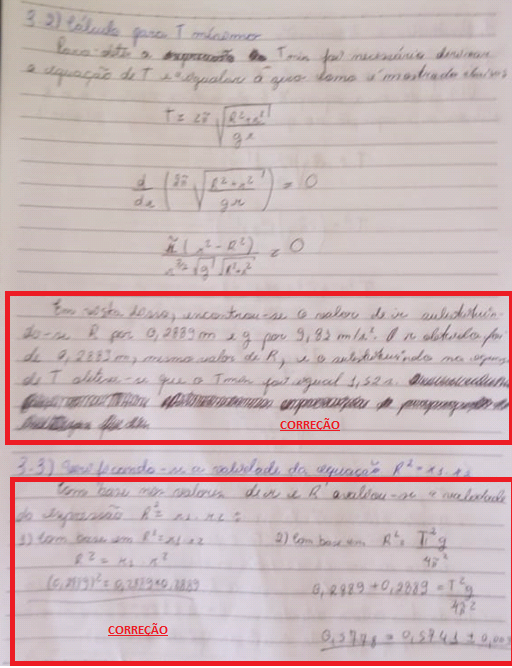 3.2) Cálculo para T mínimo
Para obter a expressão de T min foi necessário derivar
a equação de T e igualar à zero como é mostrado abaixo
T = 2π √(R²+r²/gr)
d/dr (2π √(R²+r²/gr)) = 0
π(r²-R²)/(r^3/2 √g √(R²+r²)) = 0
Em vista disso, encontrou-se o valor de r substituin-
do-se R por 0,2889m e g por 9,82 m/s². O r obtido foi
de 0,2889m, mesmo valor de R, e o substituindo na equação
de T obteve-se que o Tmin foi igual 1,52s.
CORREÇÃO
3.3) Verificando-se a validade da equação R² = r1 r2
Com base nos valores de r e R avaliou-se a validade
da expressão R² = r1 r2:
1) Com base em R² = r1 r2
2) Com base em R² = T²g/4π²
R² = r1 r2
(0,2889)² = 0,2889×0,2889
0,2889 + 0,2889 = T²g/4π²
CORREÇÃO
0,5778 = 0,5741 ± 0,003